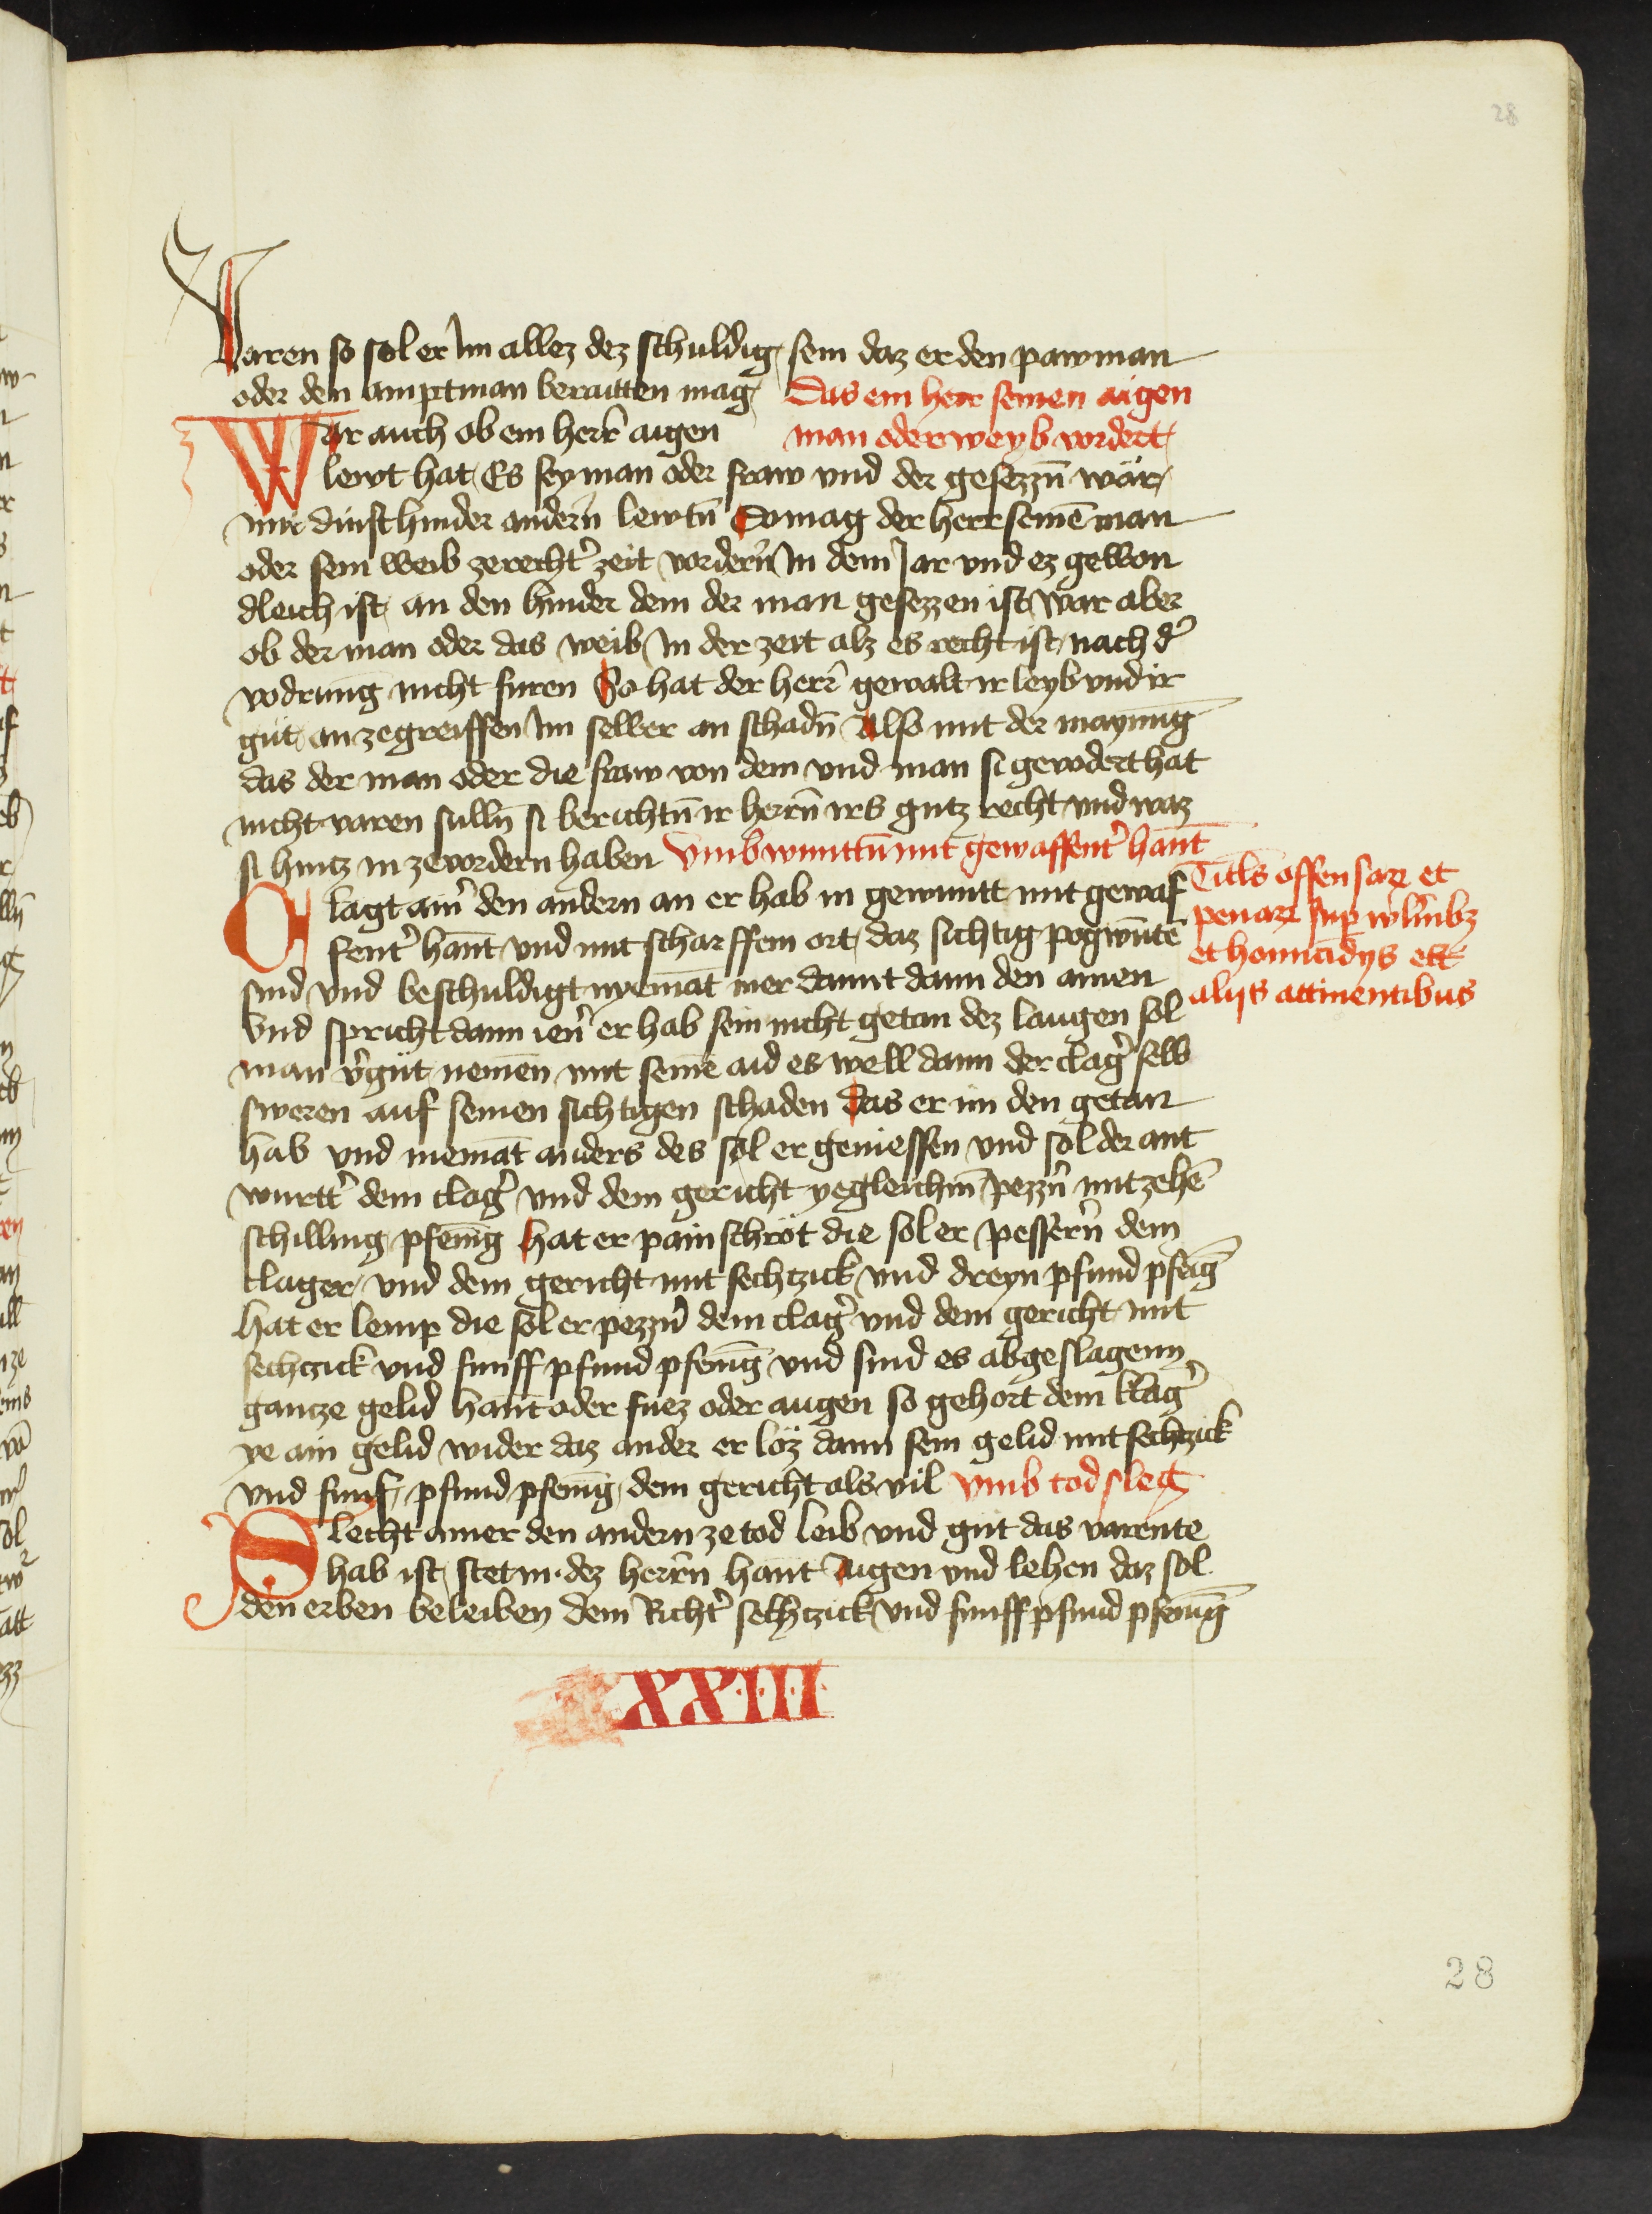 28
Varen so sol er im allez dez schuldig sein daz er den pawman
oder den amptman beraitten mag Das ein herr seinen aigen
man oder weyb vordert
Wär auch ob ein herr̄ aigen
lewt hat Es sey man oder fraw vnd der gesezzn̄ wär
mit dinst hinder andern̄ lewtn̄ So mag der herr seinē man
oder sein weib ze recht̉ zeit vordern̄ In dem Jar vnd ez gewon
dleich ist an den hinder dem der man gesezzen ist wär aber
ob der man oder das weib in der zeit alz es recht ist nach d̉
vodrung nicht furen So hat der herr̄ gewalt ir leyb vnd ir
güt an zegreiffen im selber an schadn̄ Also mit der maynūg
das der man oder die fraw von dem vnd man si gevodert hat
nicht varen sulln̄ si berichtn̄ ir herrn̄ irs gutz recht vnd waz
si hintz in ze vordern haben Vmb wuntn̄ mit gewaffent̉ hant
Clagt ain̉ den andern an er hab in gewuntt mit gewaf
fent̉ hant vnd mit scharffem ort daz sichtig pogwūtē
sind vnd beschuldigt nyemāt mer damit dann den ainen
Vnd spricht dann ien̉ er hab sein nicht getan dez laugen sol
man v̉güt nemen mit seinē aid es well dann der clag̉ selb
sweren auf seinen sichtigen schaden Das er im den getan
hab vnd niemāt anders des sol er geniessen vnd sol der ant
wurtt̉ dem clag̉ vnd dem gericht yegleichm̄ pezzn̉ mit zehē
schilling pfenīg hat er painschröt die sol er pessern̄ dem
clager vnd dem gericht mit sechtzick vnd dreyn pfund pfēig
hat er lemp die sol er pezzn̉ dem clag̉ vnd dem gericht mit
sechtzick vnd funff pfund pfenīg vnd sind es abgeslagenn
gantze gelid hant oder fuez oder augen so gehort dem klag̉
ye ain gelid wider daz ander er löz dann sein gelid mit sechtzick
vnd funf pfund pfenīg dem gericht als vil Vmb todsleg
Slecht ainer den andern ze tod leib vnd güt das varente
hab ist stet in dez herrn̄ hant Aigen vnd lehen daz sol
den erben beleiben dem Richt̉ sechtzick vnd funff pfund pfenīg
Titls offensarꝝ et
penarꝝ sup̱ wln̉ibꝫ
et homicidys ett
alijs attinentibus
XXIII
28